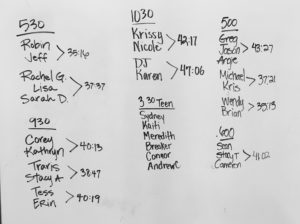 530
Robin
Jeff > 35:16
Rachel G.
Lisa > 37:37
Sarah D.
930
Corey
Kathryn > 40:13
Travis
Stacy A > 38:47
Tess
Erin > 40:19
1030
Krissy
Nicole > 42:17
DJ
Karen > 47:06
3:30 Teen
Sydney
Kaiti
Meredith
Breaker
Connor
Andrew C
500
Greg
Jason > 43:27
Angie
Michael
Kris > 37:21
Wendy
Brian > 35:13
600
Sean
Stacy T > 41:02
Cameron